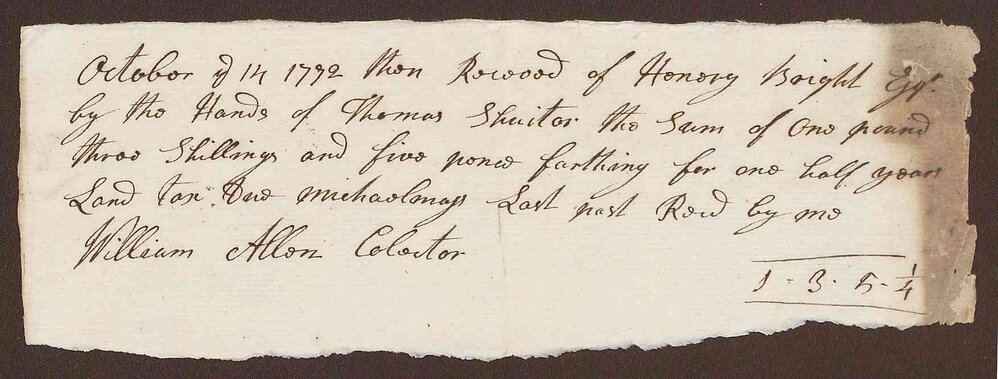 October ye 14 1792 then Receved of Henery Bright Esqr.
by the Hands of Thomas Shuiter the Sum of One pound
three Shillings and five pence farthing for one half years
Land tax Due Michaelmas Last past Recd by me
William Allen Colector
1 - 3 - 5 - 1/4